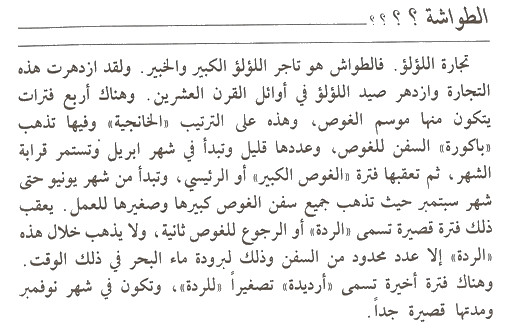 الطواشة ؟ ؟ ؟ ؟
تجارة اللؤلؤ. فالطواش هو تاجر اللؤلؤ الكبير والخبير. ولقد ازدهرت هذه
التجارة وازدهر صيد اللؤلؤ في أوائل القرن العشرين. وهناك أربع فترات
يتكون منها موسم الغوص، وهذه على الترتيب «الخانجية» وفيها تذهب
«باكورة» السفن للغوص، وعددها قليل وتبدأ في شهر ابريل وتستمر قرابة
الشهر، ثم تعقبها فترة «الغوص الكبير» أو الرئيسي، وتبدأ من شهر يونيو حتى
شهر سبتمبر حيث تذهب جميع سفن الغوص كبيرها وصغيرها للعمل. يعقب
ذلك فترة قصيرة تسمى «الردة» أو الرجوع للغوص ثانية، ولا يذهب خلال هذه
«الردة» إلا عدد محدود من السفن وذلك لبرودة ماء البحر في ذلك الوقت.
وهناك فترة أخيرة تسمى «أرديدة» تصغيراً «للردة»، وتكون في شهر نوفمبر
ومدتها قصيرة جداً.